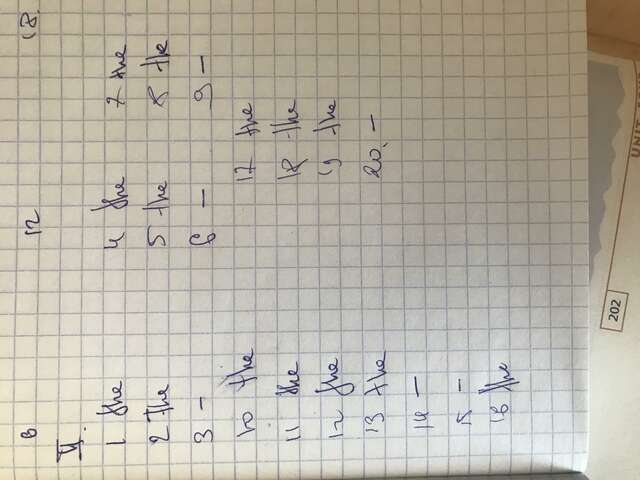 6 12 18.
VI.
1 the 4 the 7 the
2 The 5 the 8 the
3 – 6 – 9 –
10 the 17 the
11 the 18 the
12 the 19 the
13 the 20. –
14 –
15 –
16 the
202
UNIT